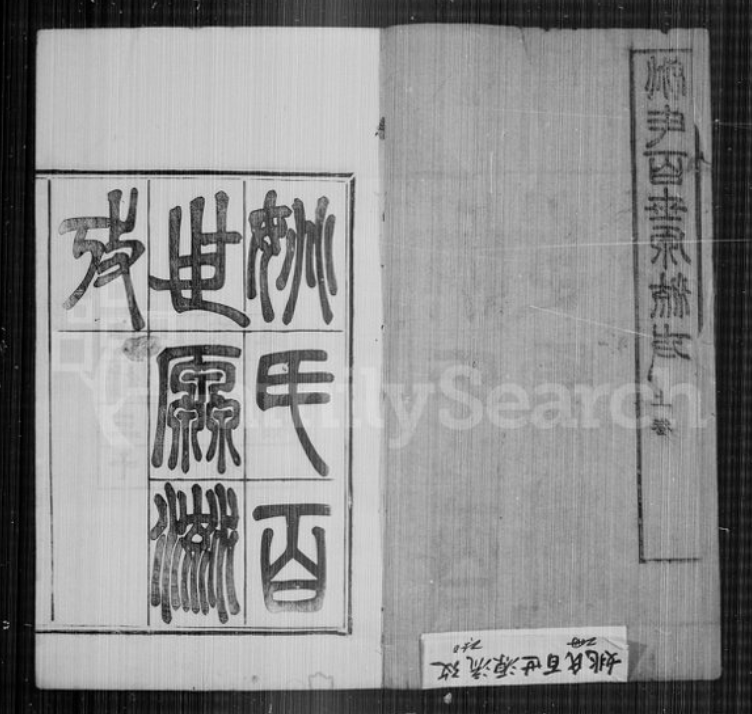 姚氏百世源流攷
上
姚氏百
世源流
攷
姚氏百世源流攷
FamilySearch